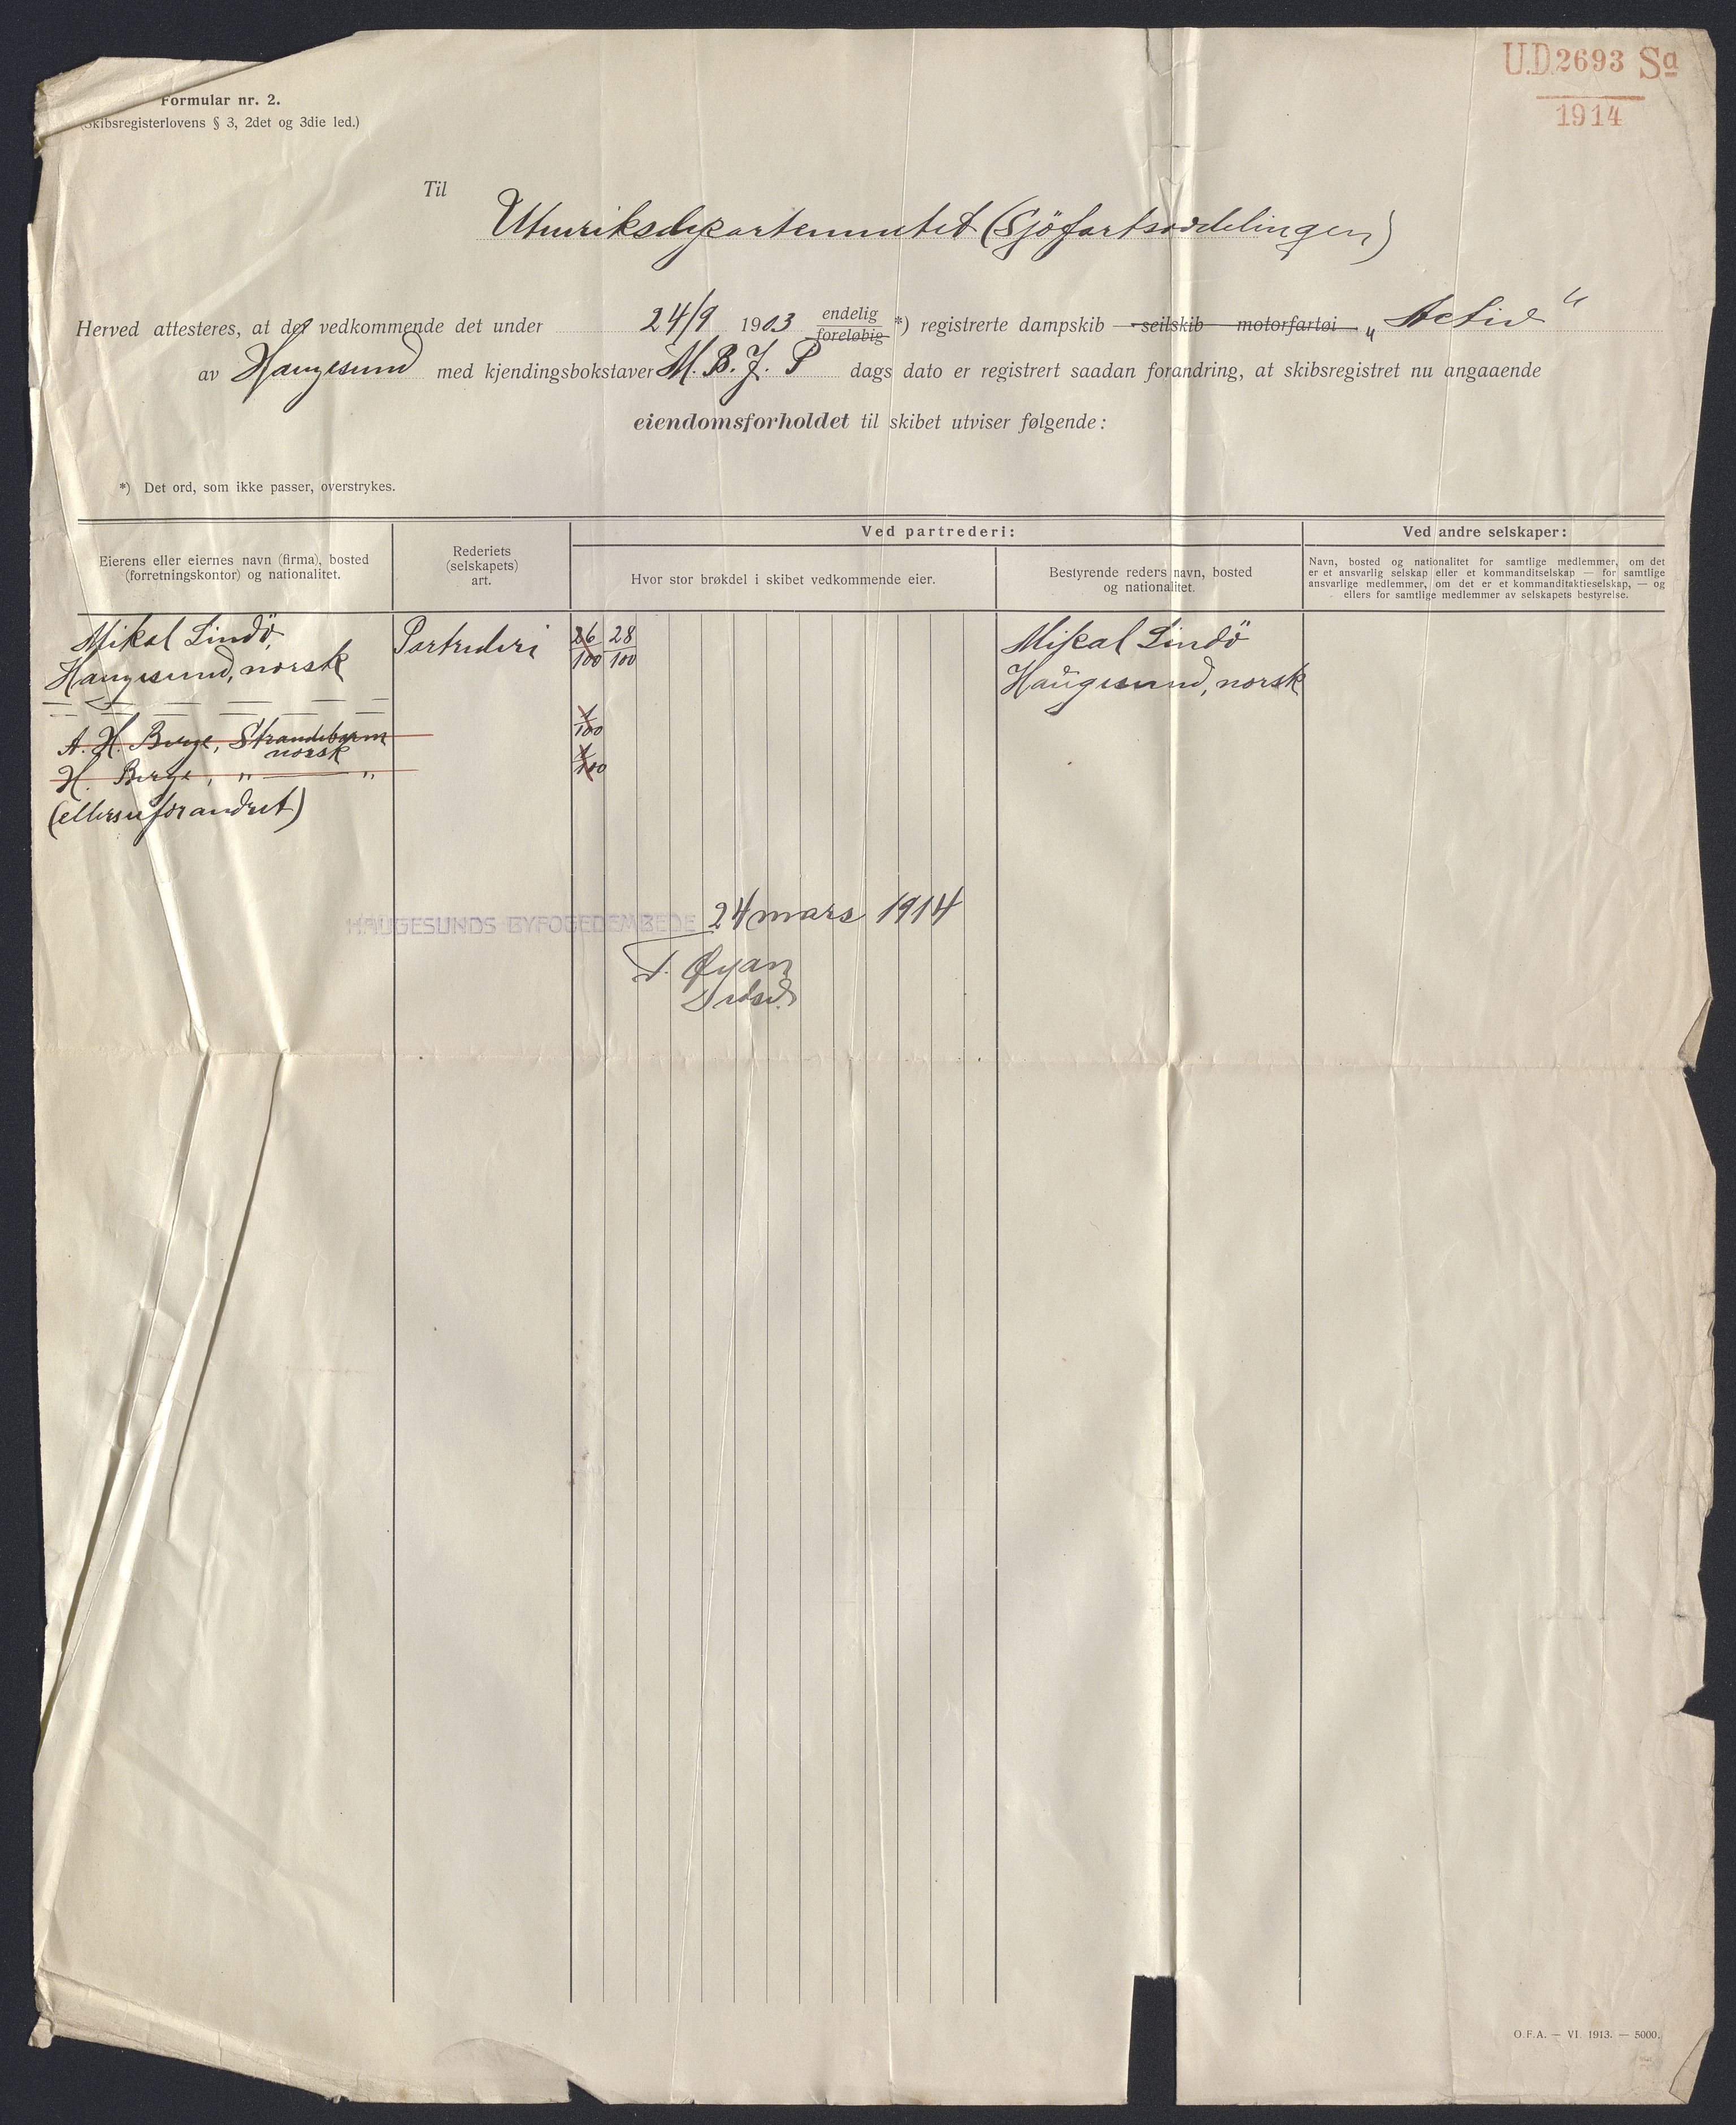 U.D. 2693 Sa
1914
Formular nr. 2.
(Skibsregisterlovens § 3, 2det og 3die led.)
Til
Utenriksdepartementet (Sjöfartsavdelingen)
Herved attesteres, at det vedkommende det under 24/9 1903 endelig foreløbig *) registrerte dampskib — seilskib — motorfartøi — „Activ“
av Haugesund med kjendingsbokstaver M. B. J. P dags dato er registrert saadan forandring, at skibsregistret nu angaaende
eiendomsforholdet til skibet utviser følgende:
*) Det ord, som ikke passer, overstrykes.
Eierens eller eiernes navn (firma), bosted
(forretningskontor) og nationalitet.
Rederiets
(selskapets)
art.
Ved partrederi:
Hvor stor brøkdel i skibet vedkommende eier.
Bestyrende reders navn, bosted
og nationalitet.
Ved andre selskaper:
Navn, bosted og nationalitet for samtlige medlemmer, om det
er et ansvarlig selskap eller et kommanditselskap — for samtlige
ansvarlige medlemmer, om det er et kommanditaktieselskap, — og
ellers for samtlige medlemmer av selskapets bestyrelse.
Mikal Lindö, Partrederi 26/100 28/100 Mikal Lindö
Haugesund, norsk Haugesund, norsk
A. H. Berge, Strandebarm 1/100
norsk
H. Berge, „ — „ 1/100
(ellers uforandret)
HAUGESUNDS BYFOGEDEMBEDE 24 mars 1914
T. Øyan
O.F.A. — VI. 1913. — 5000.